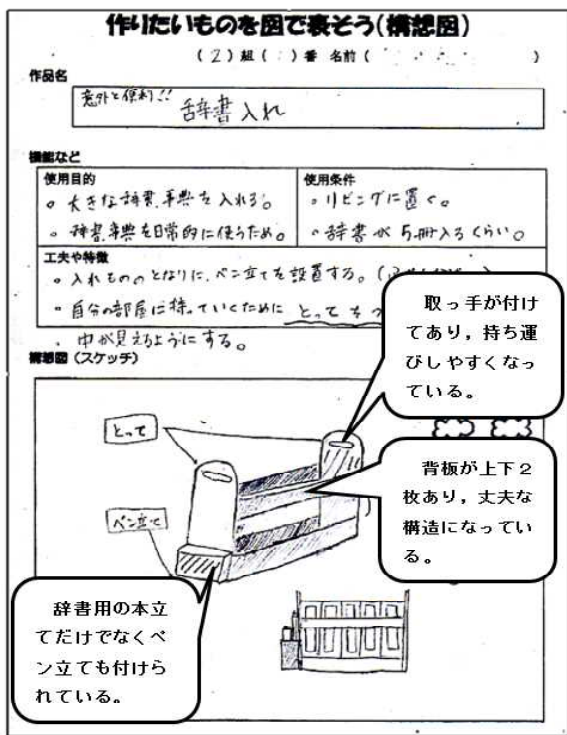 作りたいものを図で表そう(構想図)
(2)組( )番 名前( )
作品名
意外と便利!! 辞書入れ
機能など
使用目的
。大きな辞書、事典を入れる。
。辞書、事典を日常的に使うため。
使用条件
。リビングに置く。
。辞書が5冊入るくらい。
工夫や特徴
。入れもののとなりに、ペン立てを設置する。(
。自分の部屋に持っていくために とってをつ
. 中が見えるようにする。
構想図(スケッチ)
取っ手が付け
てあり,持ち運
びしやすくなっ
ている。
とって
背板が上下2
枚あり,丈夫な
構造になってい
る。
ペン立て
辞書用の本立
てだけでなくペ
ン立ても付けら
れている。